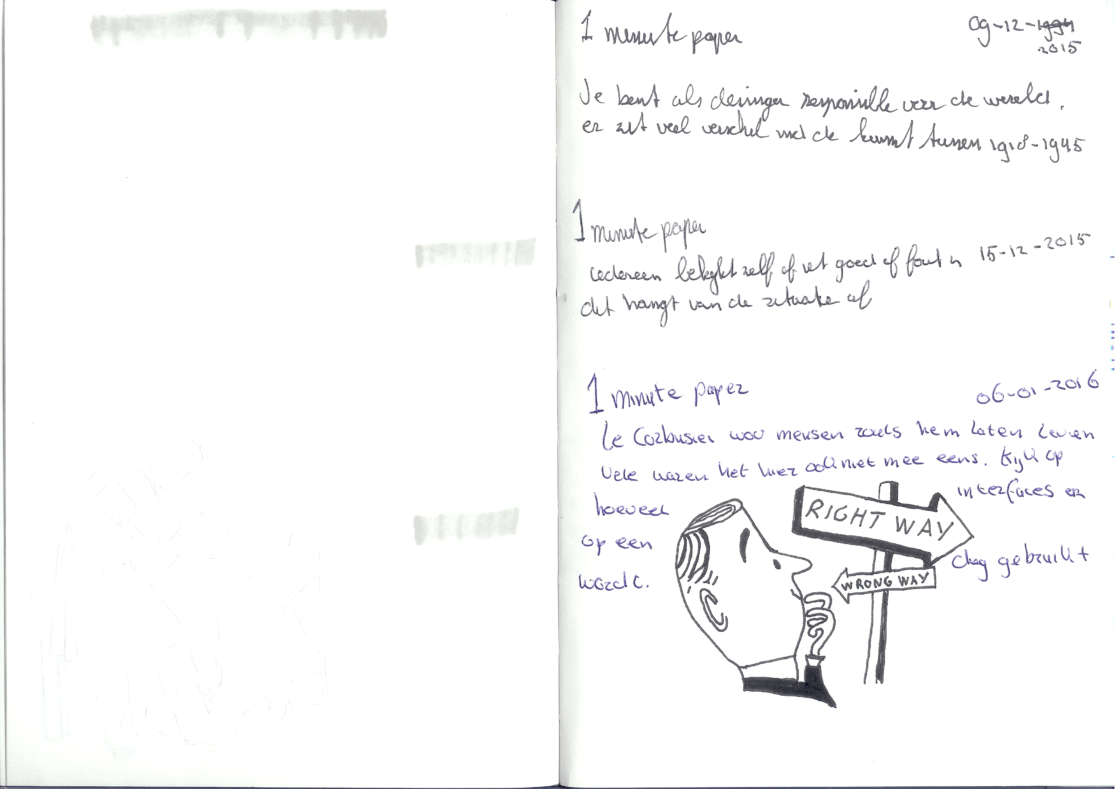 1 minute paper
09-12-1994
2015
Je bent als designer responsible voor de wereld.
er zit veel verschil met de kunst tussen 1918-1945
1 minute paper
15-12-2015
iedereen bekijkt zelf of het goed of fout is
dit hangt van de situatie af
1 minute paper
06-01-2016
Le Corbusier wou mensen zoals hem laten leven
Vele waren het hier ook niet mee eens. Kijk op
hoeveel interfaces er
op een dag gebruikt
wordt.
RIGHT WAY
WRONG WAY